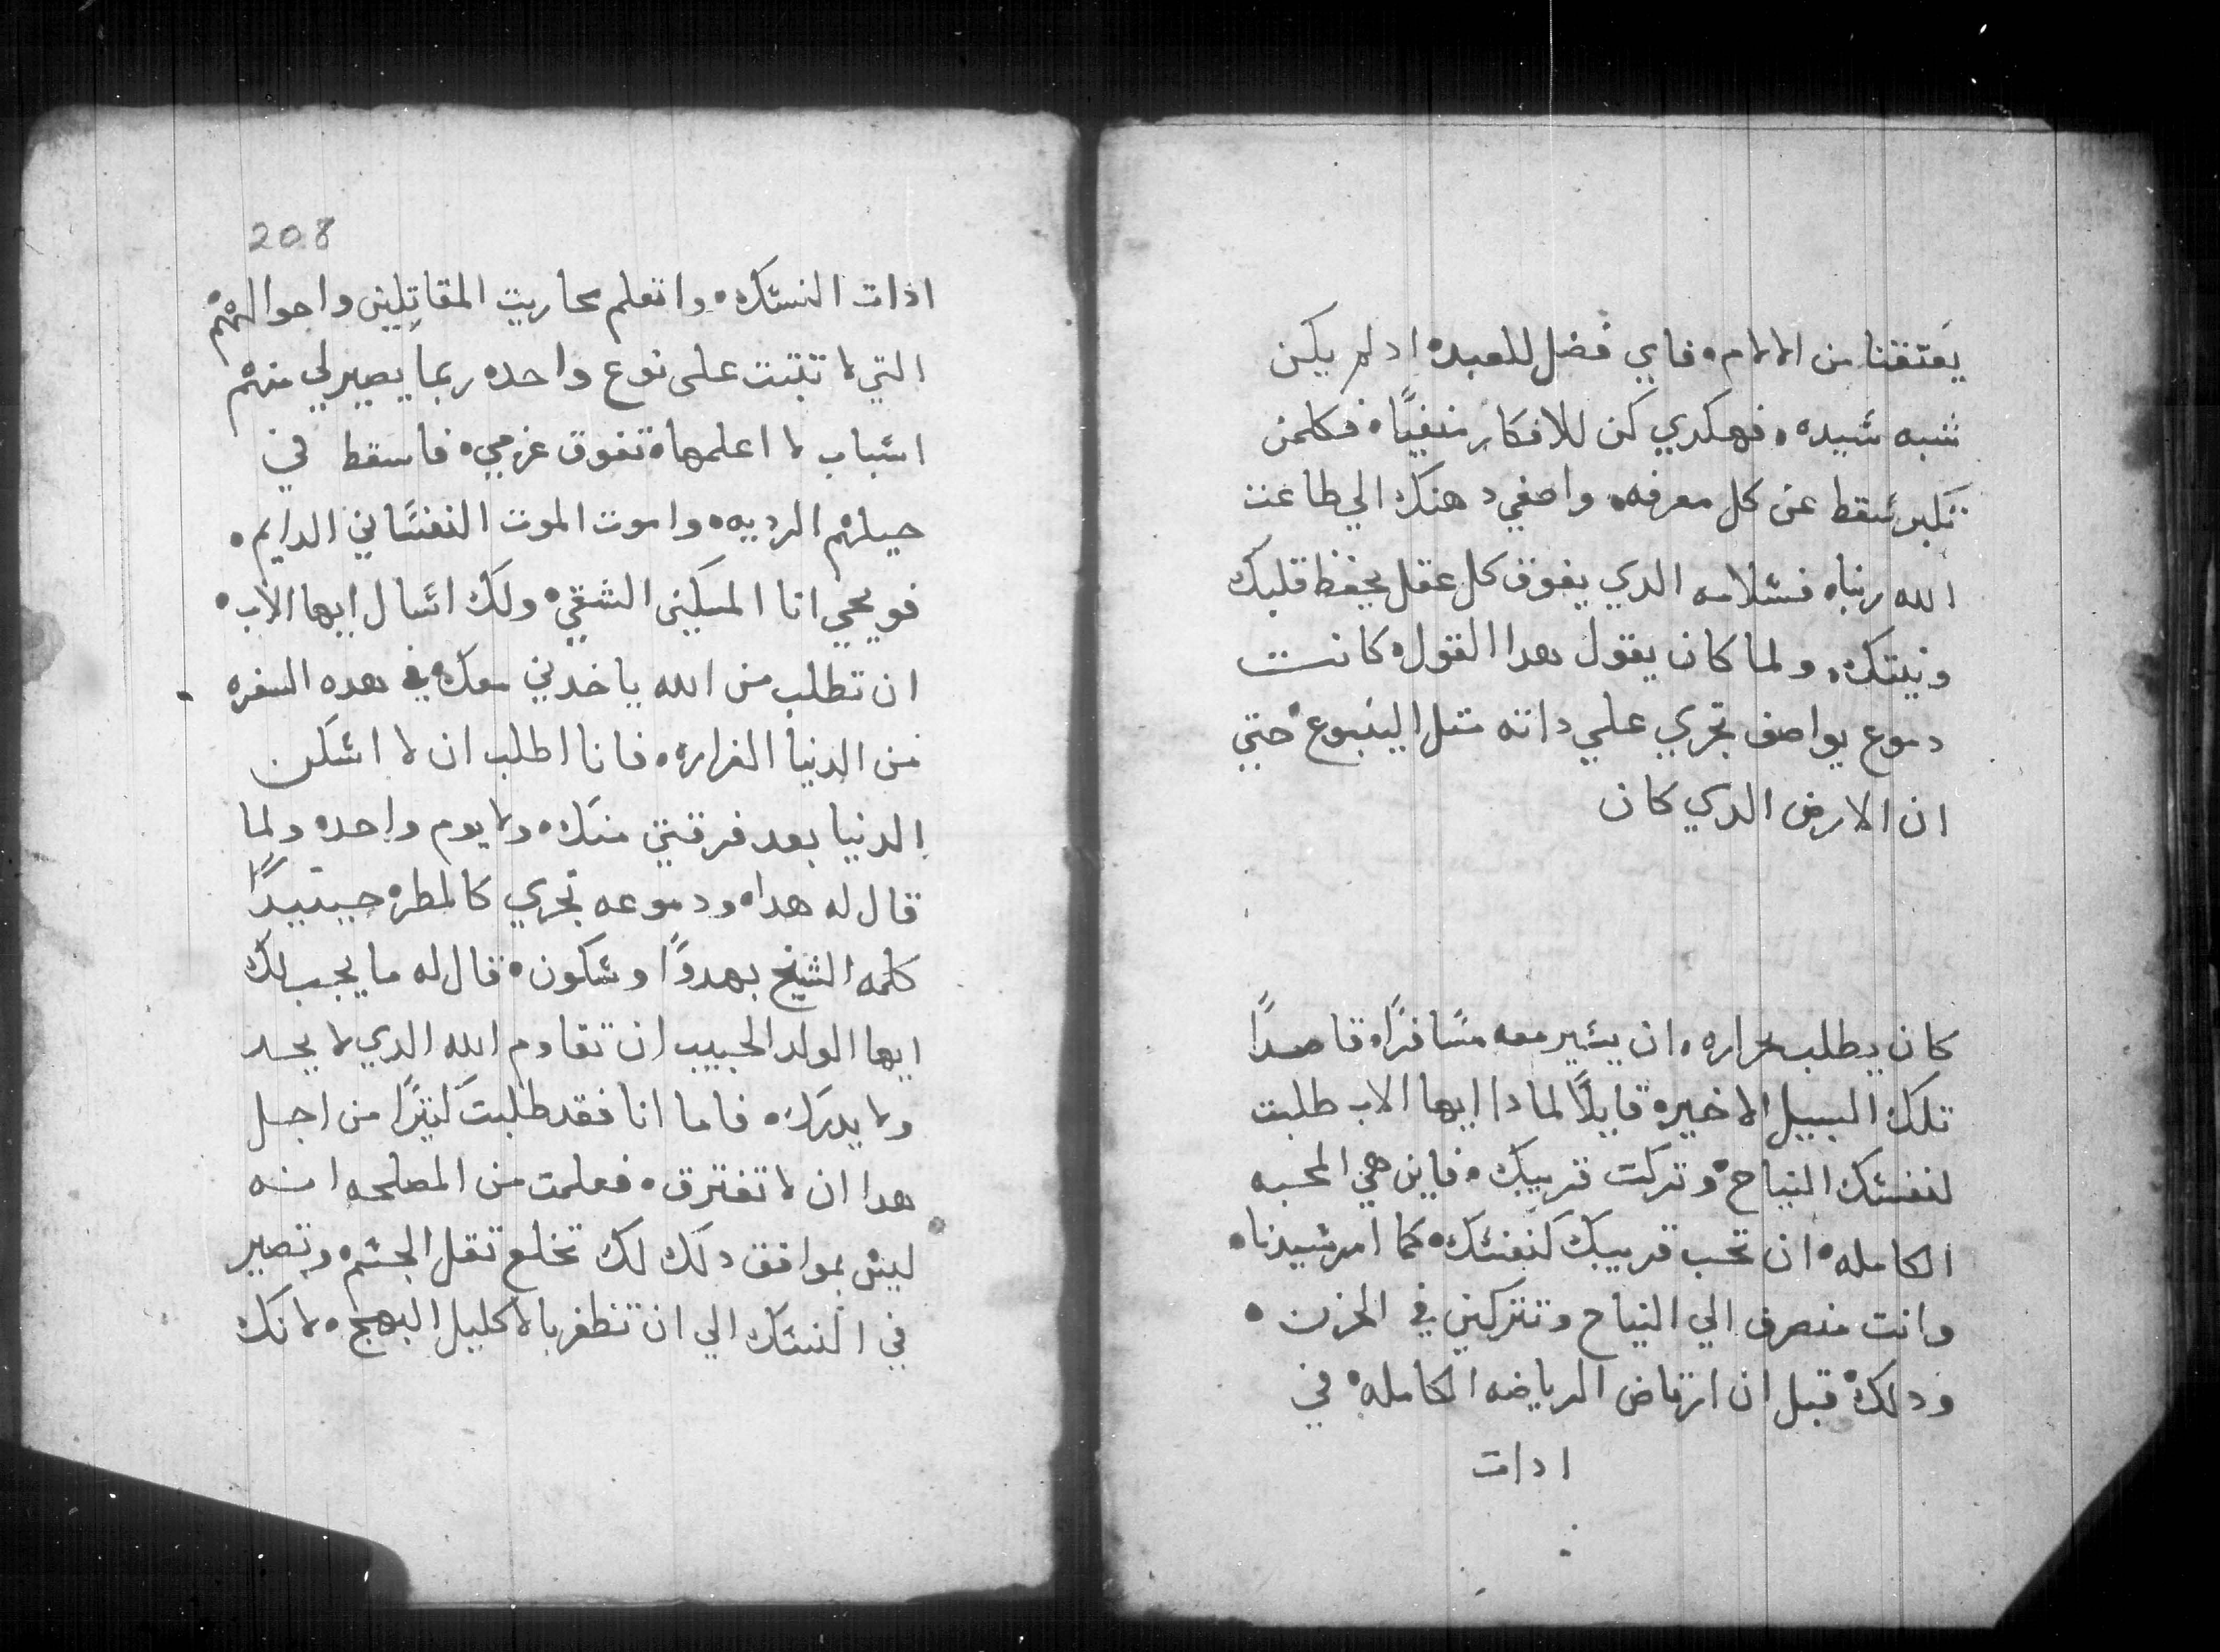 يعتقنا من الالام. فاي فضل للعبده اد لم يكن
شبه شيده. فهكدي كن للافكار منفيًا. فكلمن
تكبر شقط عن كل معرفه. واصغي دهنك الي طاعت
الله ربنا. فشلامه الدي يفوق كل عقل يحفظ قلبك
ونيتك. ولما كان يقول هدا القول. كانت
دموع يواصف تجري علي داته متل الينبوع. حتي
ان الارض الدي كان
كان يطلب بحراره. ان يشير معه مشافرًا. قاصدًا
تلك السبيل الاخيره قايلًا لمادا ايها الاب طلبت
لنفشك النياح. وتركت قريبك. فاين هي المحبه
الكامله. ان تحب قريبك كنفشك. كما امر شيدنا.
وانت منصرف الي النياح وتتركني في الحزن.
ودلك. قبل ان ارتاض الرياضه الكامله. في
ادات
208
ادات النشك. واتعلم محاربت المقاتلين واحوالهم
التي لا تتبت على نوع واحد. ربما يصير لي منهم
اشباب لا اعلمها. تفوق عزمي. فاسقط في
حيلهم الرديه. واموت الموت النفشاني الدايم.
فويحي انا المسكين الشقي. ولك اشال ايها الاب.
ان تطلب من الله ياخدني معك. في هده السفره
من الدنيا الغراره. فانا اطلب ان لا اشكن
الدنيا بعد فرقتي منك. ولا يوم واحد. ولما
قال له هدا. ودموعه تجري كالمطر. حينيدًا
كلمه الشيخ بهدوًا وشكون. قال له ما يجب لك
ايها الولد الحبيب ان تقاوم الله الدي لا يحد
ولا يدرك. فاما انا فقد طلبت كتيرًا من اجل
هدا ان لا تفترق. فعلمت من المصلحه انه
ليش بموافق دلك لك تخلع تقل الجشم. وتصير
في النشك الي ان تظفر بالاكليل البهج. لانك